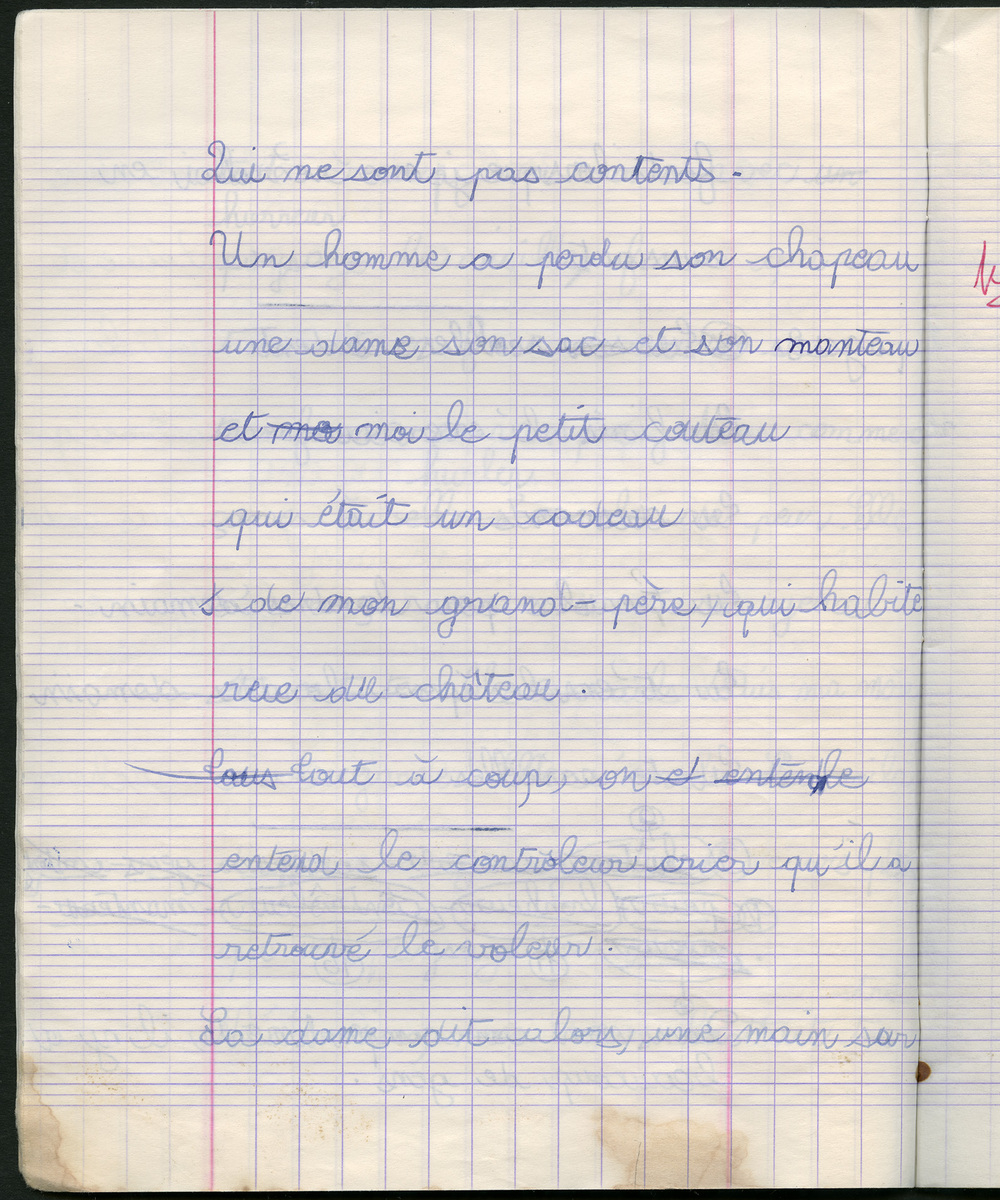 Qui ne sont pas contents.
Un homme a perdu son chapeau
une dame son sac et son manteau
et ma moi le petit couteau
qui était un cadeau
de mon grand-père, qui habite
rue du château.
Tous Tout à coup, on et entende
entend le contrôleur crier qu'il a
retrouvé le voleur.
La dame dit alors, une main sur